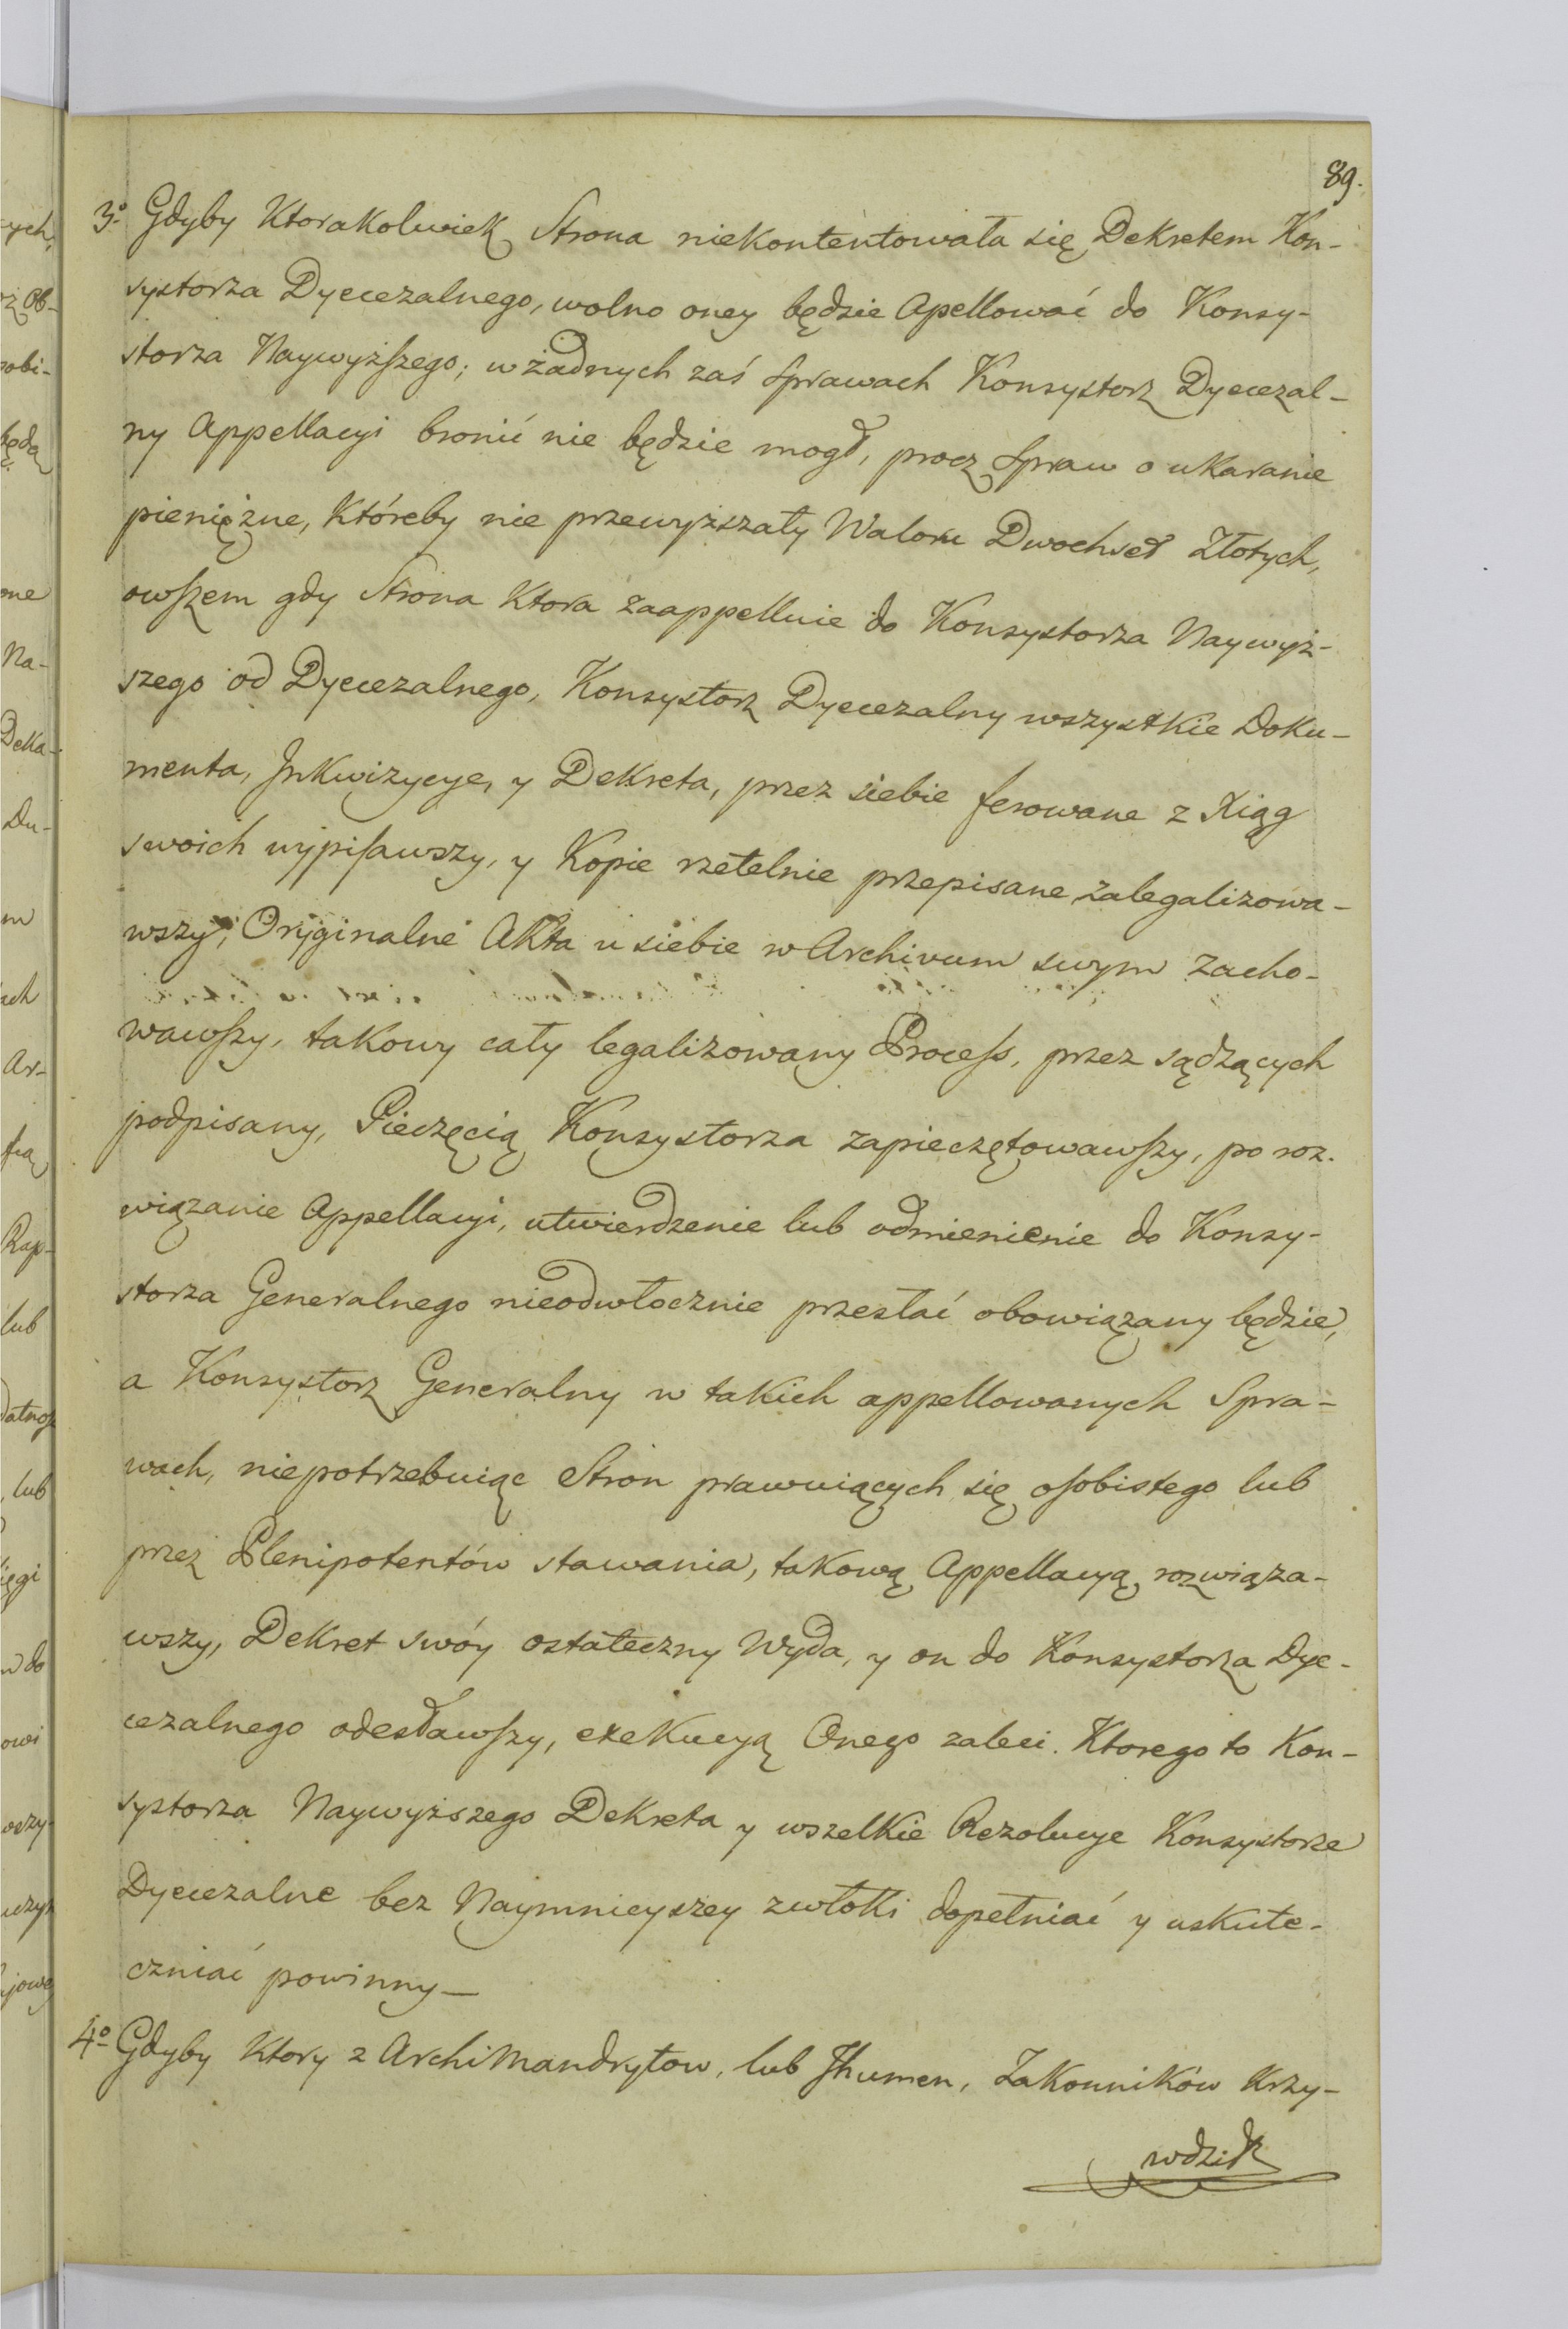 89.
3o Gdyby Ktorakolwiek Strona niekontentowała się Dekretem Kon-
systorza Dyecezalnego, wolno oney będzie Apellować do Konsy-
storza Naywyżſzego; w żadnych zaś Sprawach Konsystorz Dyecezal-
ny Appellacyi bronić nie będzie mogł, procz Spraw o ukaranie
pieniężne, któreby nie przewyższały Waloru Dwochset Złotych,
owſzem gdy Strona Ktora zaappelluie do Konsystorza Naywyż-
szego od Dyecezalnego, Konsystorz Dyecezalny wszystkie Doku-
menta, Inkwizycye, y Dekreta, przez siebie ferowane z Xiąg
swoich wypiſawszy, y Kopie rzetelnie przepisane zalegalizowa-
wszy, Oryginalne Akta u siebie w Archivum swym zacho-
wawſzy, takowy cały legalizowany Proceſs, przez sądzących
podpisany, Pieczęcią Konsystorza zapieczętowawſzy, po roz-
wiązanie Appellacyi, utwierdzenie lub odmienienie do Konsy-
storza Generalnego nieodwłocznie przesłać obowiązany będzie,
a Konsystorz Generalny w takich appellowanych Spra-
wach, niepotrzebuiąc Stron prawuiących się oſobistego lub
przez Plenipotentów stawania, takową Appellacyą rozwiąza-
wszy, Dekret swóy ostateczny Wyda, y on do Konsystorza Dye-
cezalnego odesławſzy, exekucyą Onego zaleci. Ktorego to Kon-
systorza Naywyższego Dekreta y wszelkie Rezolucye Konsystorze
Dyecezalne bez Naymnieyszey zwłoki dopełniać y uskute-
czniać powinny—
4o Gdyby Ktory z Archimandrytow, lub Jhumen, Zakonników Krzy-
wdził